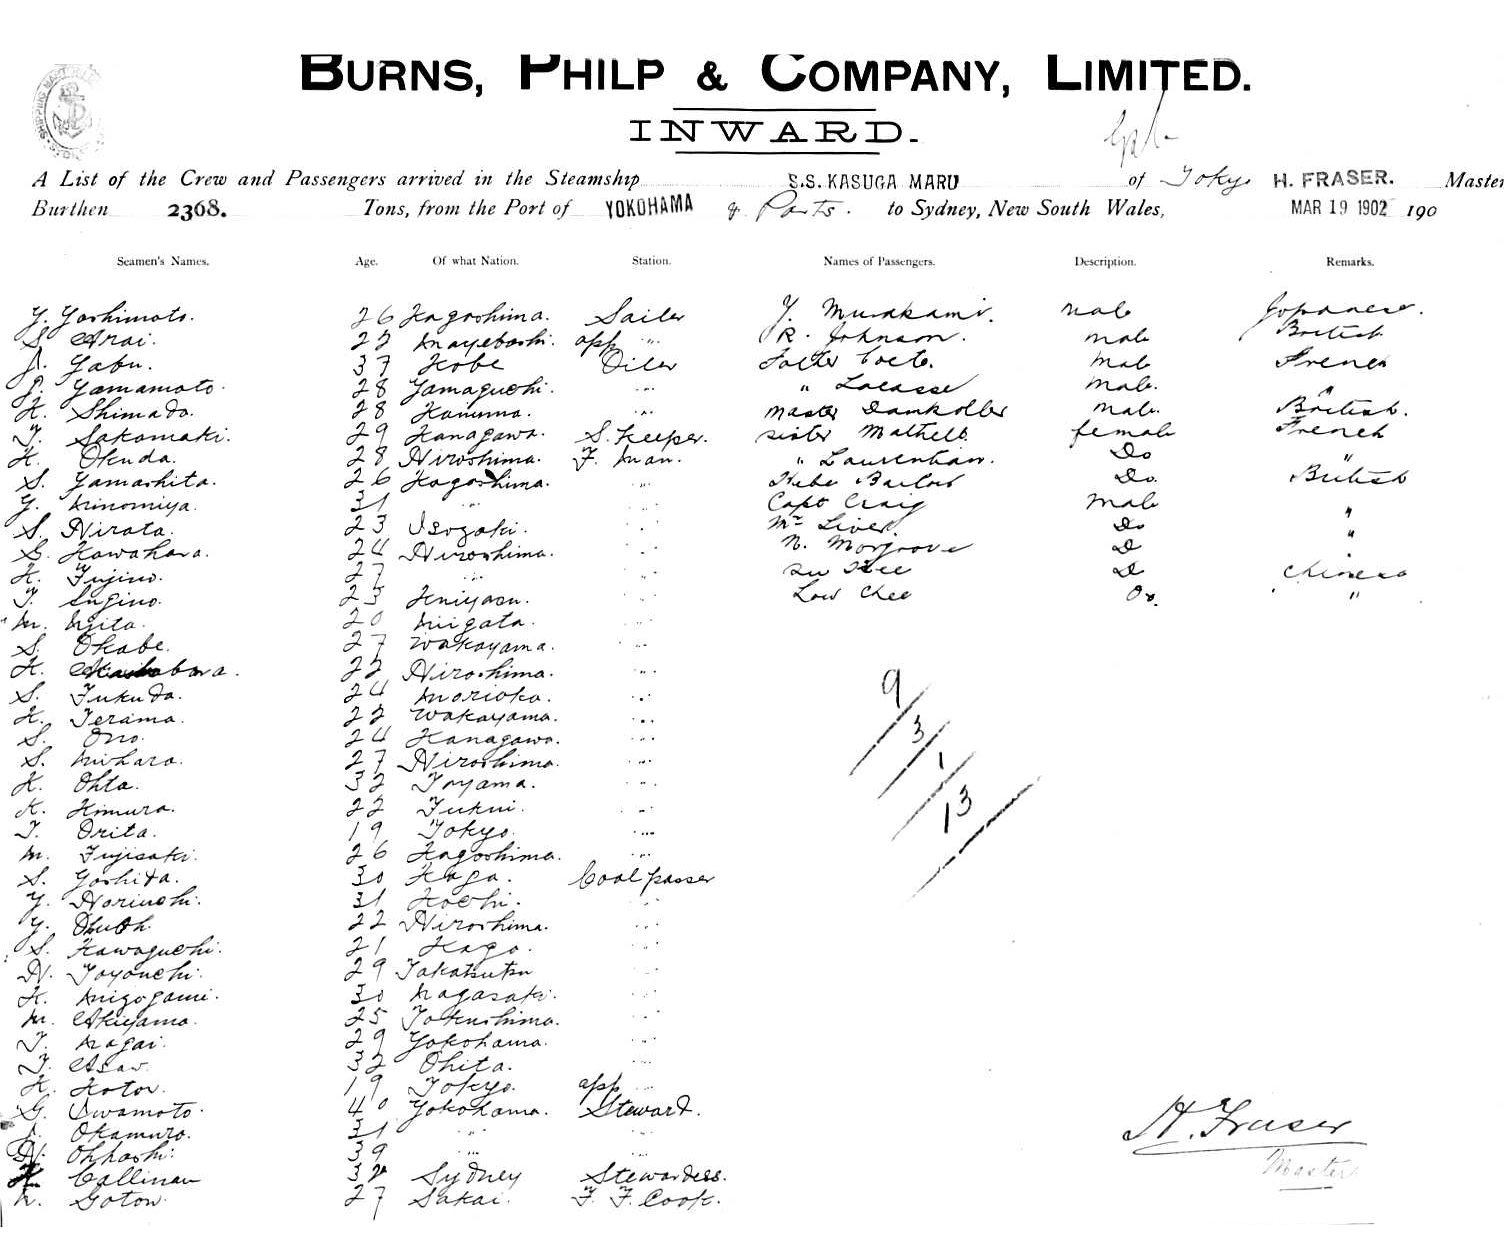 BURNS, PHILP & COMPANY, LIMITED.
INWARD.
A List of the Crew and Passengers arrived in the Steamship S.S. KASUGA MARU of Tokyo H. FRASER. Master
Burthen 2368. Tons, from the Port of YOKOHAMA & Ports. to Sydney, New South Wales, MAR 19 1902 190
Seamen's Names. Age. Of what Nation. Station. Names of Passengers. Description. Remarks.
Y. Yoshimoto. 26 Kagoshima. Sailer Y. Murakami. male Japanese.
S. Arai. 22 Mayebashi. app " R. Johnson. male British
J. Yabu. 37 Kobe Oiler Male French
J. Yamamoto. 28 Yamaguchi. " " Lacasse Male. "
K. Shimada. 28 " master Dankoller Male. British.
T. Sakamaki. 29 Kanagawa. S. Keeper. sister female French
K. Okuda. 28 Hiroshima. F. man. " Do "
S. Yamashita. 26 Kagoshima. " Do. British
Y. Ninomiya. 31 " " Capt Craig Male "
S. Hirata. 23 Isozaki. " Mr Do "
S. Kawahara. 24 Hiroshima. " N. Morgrove D "
K. Fujino. 27 " " D Chinese
T. Sugino. 23 " Low Chee Do. "
M. 20 Niigata. "
S. Okabe. 27 Wakayama. "
K. 22 Hiroshima. "
S. Fukuda. 24 Morioka. "
K. Terama. 22 Wakayama. "
S. Ono. 24 Kanagawa. "
S. Mihara. 27 Hiroshima. "
K. Ohta. 32 Toyama. "
K. Kimura. 22 Fukui. "
T. Orita. 19 Tokyo. "
M. Fujisaki. 26 Kagoshima. "
S. Yoshida. 30 Kaga. Coal passer
Y. Noriuchi. 31 Kochi. "
Y. 22 Hiroshima. "
S. Kawaguchi. 21 Kaga. "
N. Toyouchi. 29 Takatsutsu "
K. Mizogami. 30 Nagasaki. "
M. Akiyama. 25 Tokushima. "
T. Nagai. 29 Yokohama. "
T. Asaw. 32 Ohita. "
K. Kotov. 19 Tokyo. app "
G. Iwamoto. 40 Yokohama. Steward.
J. Okamuro. 31 " "
N. Ohhashi. 39 " "
Callinan 32 Sydney Stewardess.
Gotow. 27 Sakai. F. F. Cook.
9/
3/
1/
13/
H. Fraser
Master